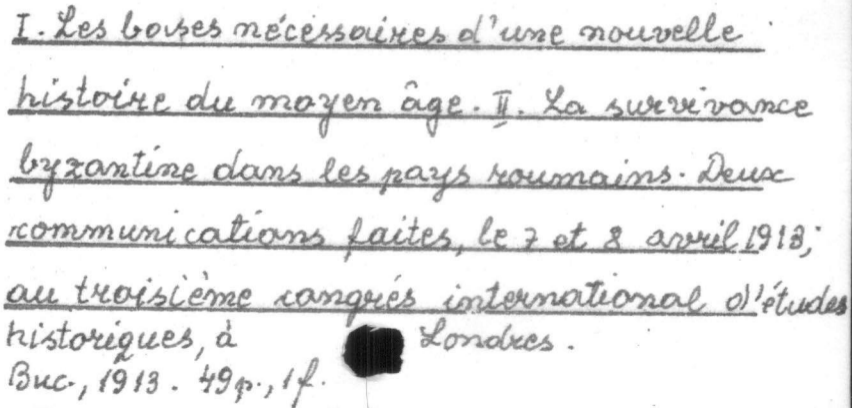 I. Les bases nécessaires d'une nouvelle
histoire du moyen âge. II. La survivance
byzantine dans les pays roumains. Deux
communications faites, le 7 et 8 avril 1913,
au troisième congrés international d'études
historiques, à Londres.
Buc., 1913. 49 p., 1 f.